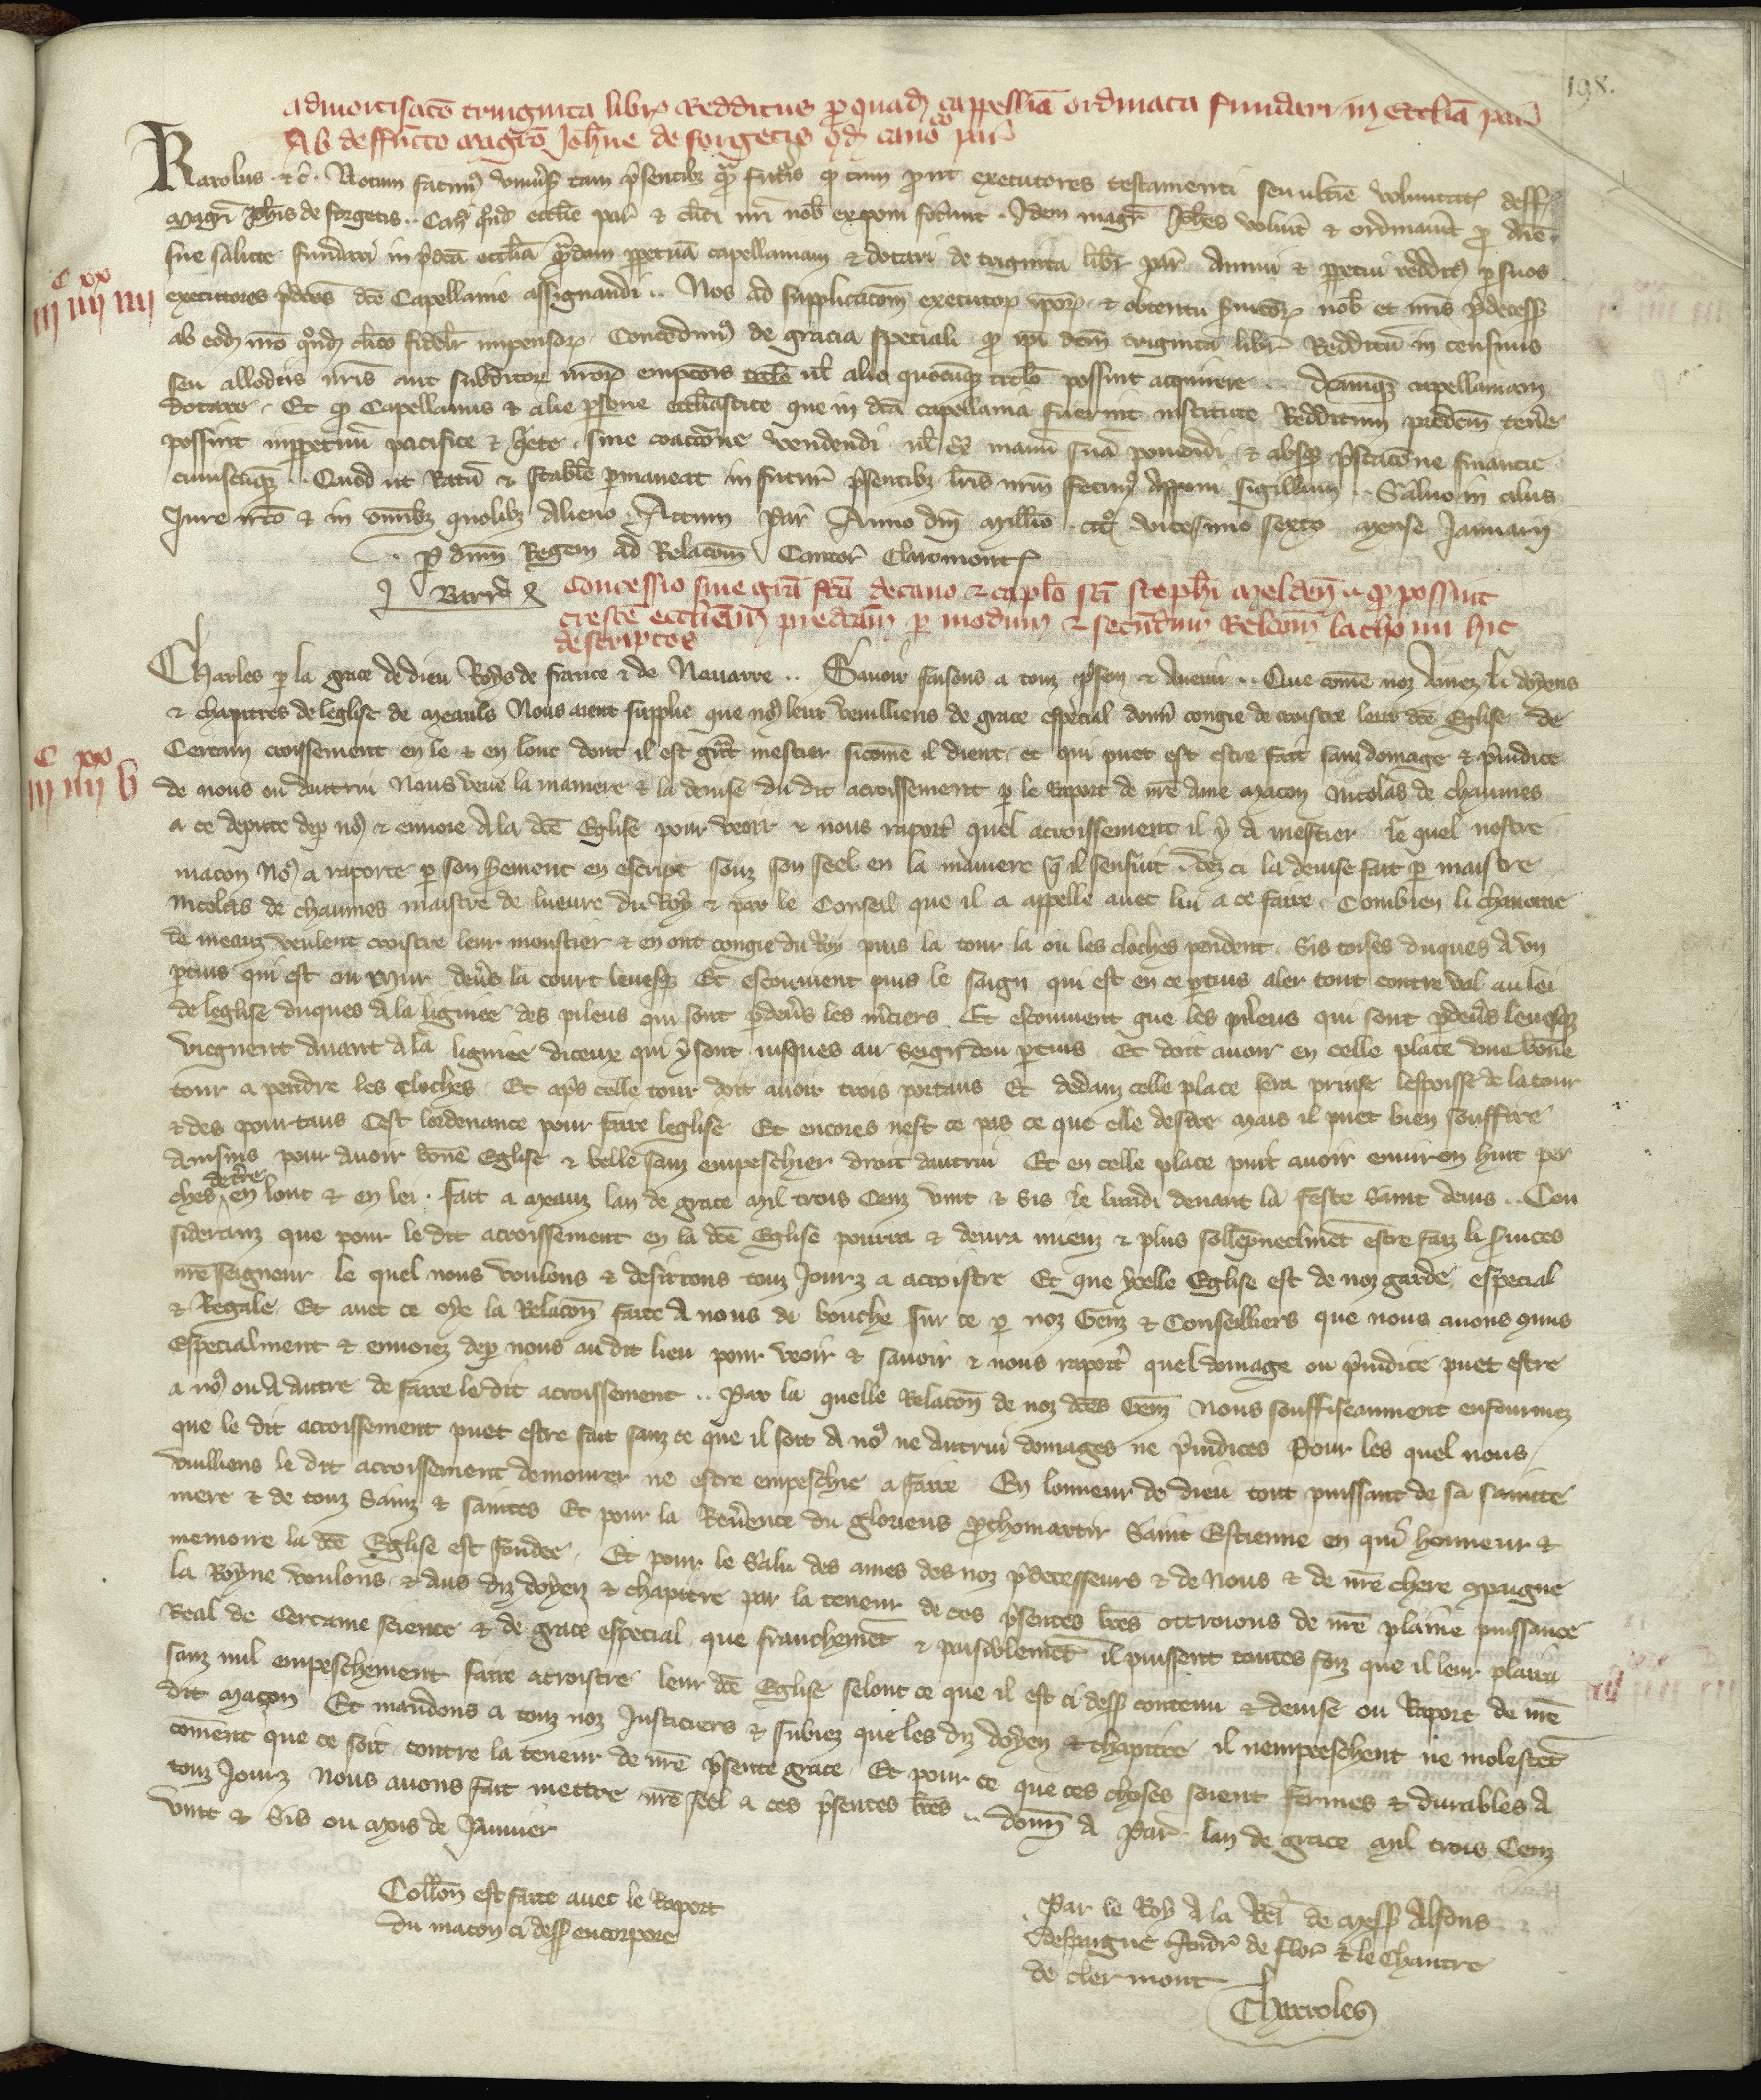 198.
admortisac̃o triginta libr̃ Redditus p quadã cappellia ordinata fundari in ecclia par̃
Ab deffũcto magr̃o Joh̃ne de forgetis qd̃ cano͂co par̃
Karolus ⁊ c̃. Notum facim⁹ univ̾s̃ tam p̃sentibz q̃ fut̃is q cum p ut executores testamenti seu ultĩe voluntat̃ deff̃
magr̃i Joh̃is de forgetis .. Can̾ q̃nd ecclie par̃ ⁊ cl̃ici nr̃i nob̃ exponi fec̾unt. Idem magr̃ Joh̃es voluit ⁊ ordinavit p aĩe
sue salute fundari in p̃dc̃a ecclia q̃ndam ppetuã capellaniam ⁊ dotari de triginta libr̃ par̃ Annui ⁊ ppetui redditꝰ p suos
C xx
iij iiij iiij
executores p̃dc̃os dc̃e Capellanie assignandi .. Nos ad supplicac̃om executor̃ ipor̃ ⁊ obtentu s̾vicior̃ nob̃ et nr̃is p̃decess̃
ab eod̃ mr̃o q̃nd̃ cl̃ico fidel̃r impensor̃ Concedim⁹ de gracia speciali q ip̃i dc̃m triginta libr̃ Redditũ in censivis
seu allodiis nr̃is aut subditor̃ nr̃or̃ empc̃ois titlo ul̃ alio quocũqz titl̃o possint acquirere .. dc̃amqz capellaniam
dotare. Et q Capellanus ⁊ alie p̃sone eccl̃iastice que in dc̃a capellania fuerint institute Redditum predc̃m ten̾e
possint inppetuũ pacifice ⁊ q̾ete sine coacc̃one vendendi ul̃ ex̃ manũ suã ponendi ⁊ absqz p̃stac̃one financie
cuiuscũqz .. Quod ut Ratũ ⁊ stabile p̃maneat in futur̃ p̃sentibz l̃ris nr̃m fecim⁹ Apponi sigillum .. Salvo in aliis
Jure nr̃o ⁊ in om̃ibz quolibz Alieno. Actum Par̃ Anno dn̾i Mill̃io ccco vicesimo sexto mense Januarij
.. p dnm̃ Regem ad Relac̃om Cantor̃ Claromont̃
J Barr̃
Concessio sive gr̃a fc̃a decano ⁊ capl̃o sc̃i steph̃i melden̾ .. q possint
cresc̾e ecclĩam predc̃am p modum ⁊ secundum Relc̃om lathomi hic
descriptos
Charles p la grace de dieu Roys de france ⁊ de Navarre .. Savoir faisons a touz p̃sen̾ ⁊ Avenir .. Que cõme noz Amez li doyens
⁊ chapitres de leglise de Meauls Nous aient supplie que no⁹ leur veuilliens de grace especial donn̾ congie de croistre leur dc̃e Eglise de
C xx
iij iiij v
Certain croissement en le ⁊ en lonc dont il est gñt mestier sicõme il dient. et qui puet est estre fait sanz domage ⁊ p̃iudice
de nous ou dautrui Nous veue la maniere ⁊ la devise du dit acroissement p le Raport de nr̃e Ame Macon Nicolas de chaumes
a ce depute dep no⁹ ⁊ envoie A la dc̃e Eglise pour veoir ⁊ nous raport̾ quel acroissement il y a mestier le quel nostre
macon No⁹ a raporte p son s̾ement en escript souz son seel en la maniere q̃ il sensuit . Vez ci la devise fait p maistre
Nicolas de chaumes maistre de lueuvre du Roy ⁊ par le Conseil que il a appelle avec lui a ce faire. Combien li chanoine
de meauz veulent croistre leur monstier ⁊ en ont congie du Roy puis la tour la ou les cloches pendent. Sis toises duques a un
ptuis qui est ou mur dev̾s la court levesq̃ Et escouvient puis le saign qui est en ce ptuis aler tout contre val au lei
de leglise duques A la ligniee des pileus qui sont p dev̾s les m̾ciers Et escouvient que les pileus qui sont p dev̾s levesqz
viegnent Avant A la ligniee diceux qui y sont iusques au seign dou ptuis. Et doit avoir en celle place une bõne
tour a pendre les cloches. Et ap̃s celle tour doit avoir trois portaus Et dedam celle place sera prinse lespoisse de la tour
⁊ des pourtaus Cest lordenance pour faire leglise Et encores nest ce pas ce que elle desire Mais il puet bien souffire
Ainsins pour avoir bõne Eglise ⁊ belle sanz empeschier droit dautrui Et en celle place puit avoir environ huit per
ches de t̾re en lonc ⁊ en lei. Fait a Meauz lan de grace Mil trois Cenz vint ⁊ Sis le lundi devant la Feste Saint denis .. Con
sideranz que pour le dit acroissement en la dc̃e Eglise pourra ⁊ devra mieuz ⁊ plus sollẽpneelmẽt estre faiz li s̾vices
nr̃e seigneur le quel nous voulons ⁊ desirrons touz Jourz a acroistre Et que ycelle Eglise est de noz garde especial
⁊ Regale. Et avec ce oye la Relac̃on faite A nous de bouche sur ce p noz Genz ⁊ Conseilliers que nous avons mis
Especialment ⁊ envoiez dep nous au dit lieu pour veoir ⁊ savoir ⁊ nous raport̾ quel domage ou p̃iudice puet estre
a no⁹ ou A autre de faire le dit acroissement .. Par la quelle Relac̃on de noz dc̃es Genz Nous souffiseaument enfourmez
que le dit acroissement puet estre fait sanz ce que il soit A no⁹ ne Autrui domages ne p̃iudices Pour les quel nous
vuilliens le dit acroissement demourer ne estre empeschie a faire En lonneur de dieu tout puissant de sa sainte
mere ⁊ de touz Sainz ⁊ saintes Et pour la Rev̾ence du glorieus pthomartir Saint Estienne en qui honneur ⁊
memoire la dc̃e Eglise est fondee. Et pour le Salu des ames des noz p̃decesseurs ⁊ de Nous ⁊ de nr̃e chere Compaigne
la Royne voulons ⁊ aus diz doyen ⁊ chapitre par la teneur de ces p̃sentes l̃res ottroions de nr̃e plaine puissance
Real de Certaine science ⁊ de grace especial que franchemẽt ⁊ paisiblemẽt il puissent toutes foiz que il leur plaira
sanz nul empeschement faire acroistre leur dc̃e Eglise selont ce que il est ci dess̃ contenu ⁊ devise ou Raport de nr̃e
dit Maçon Et mandons a touz noz Justiciers ⁊ subiez que les diz doyen ⁊ chapitre il nempeeschent ne molestẽt
cõment que ce soit contre la teneur de nr̃e p̃sente grace. Et pour ce que ces choses soient fermes ⁊ durables A
touz Jourz Nous avons fait mettre nr̃e seel a ces p̃sentes l̃res .. donn̾ A Par̃ lan de grace Mil trois Cenz
vint ⁊ Sis ou Mois de Janvier
Coll̃on est faite avec le Raport
du macon ci dess̃ encorpore
Par le Roy A la Rel̃ de Mess̃ Alfons
despaigne Andr̃ de flor̃ ⁊ le Chantre
de cler mont
Charroles